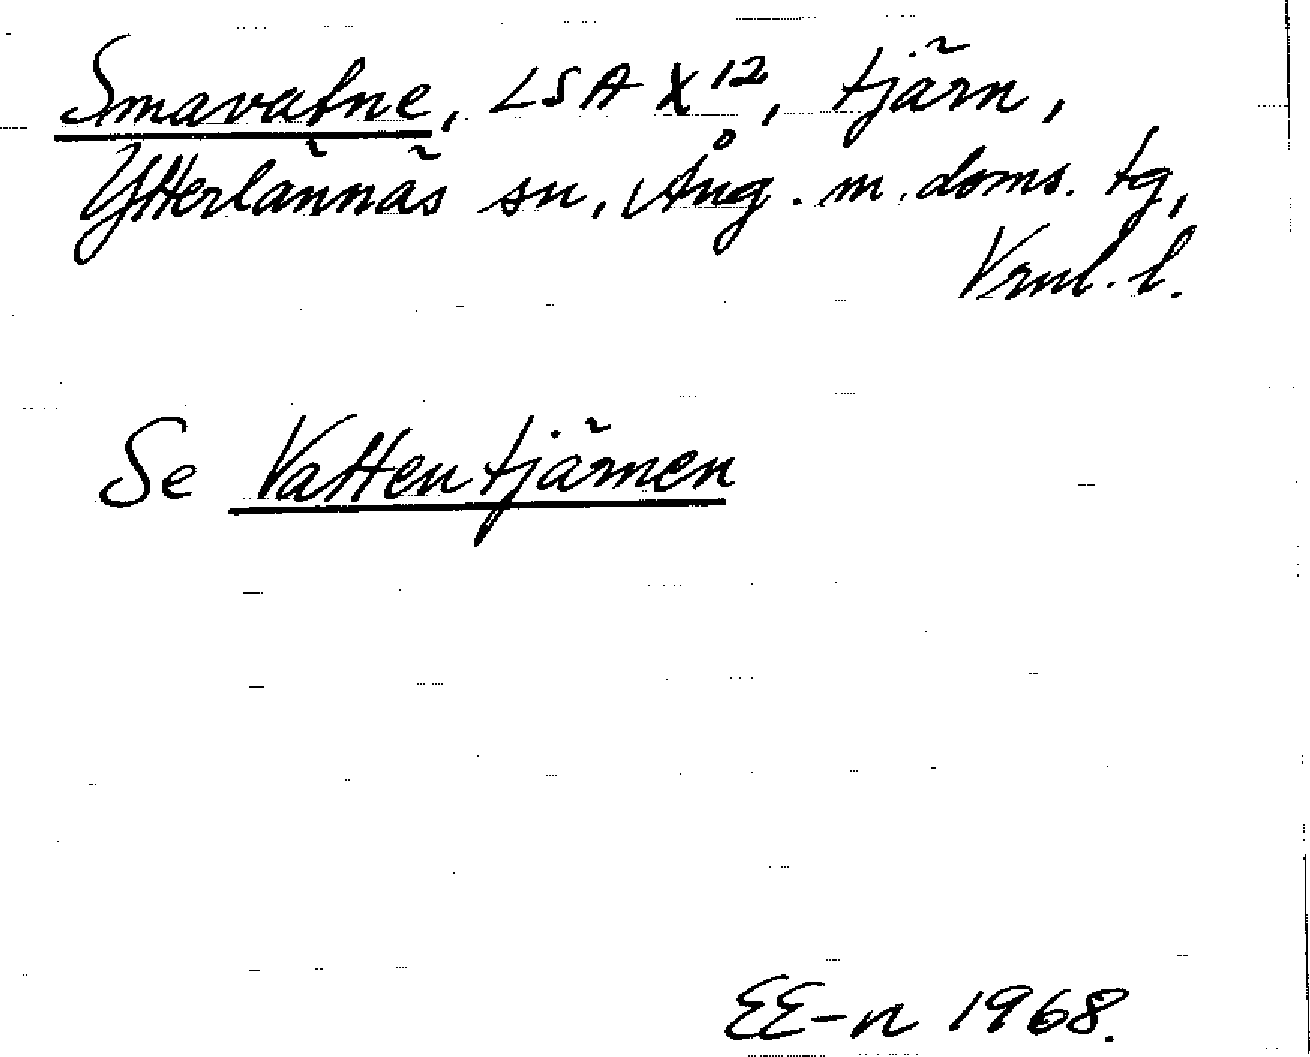 Smavatne, LSA X 12, tjärn,
Ytterlännäs sn, Ång. m. doms. tg,
Vrml. l.
Se Vattentjärnen
EE-n 1968.